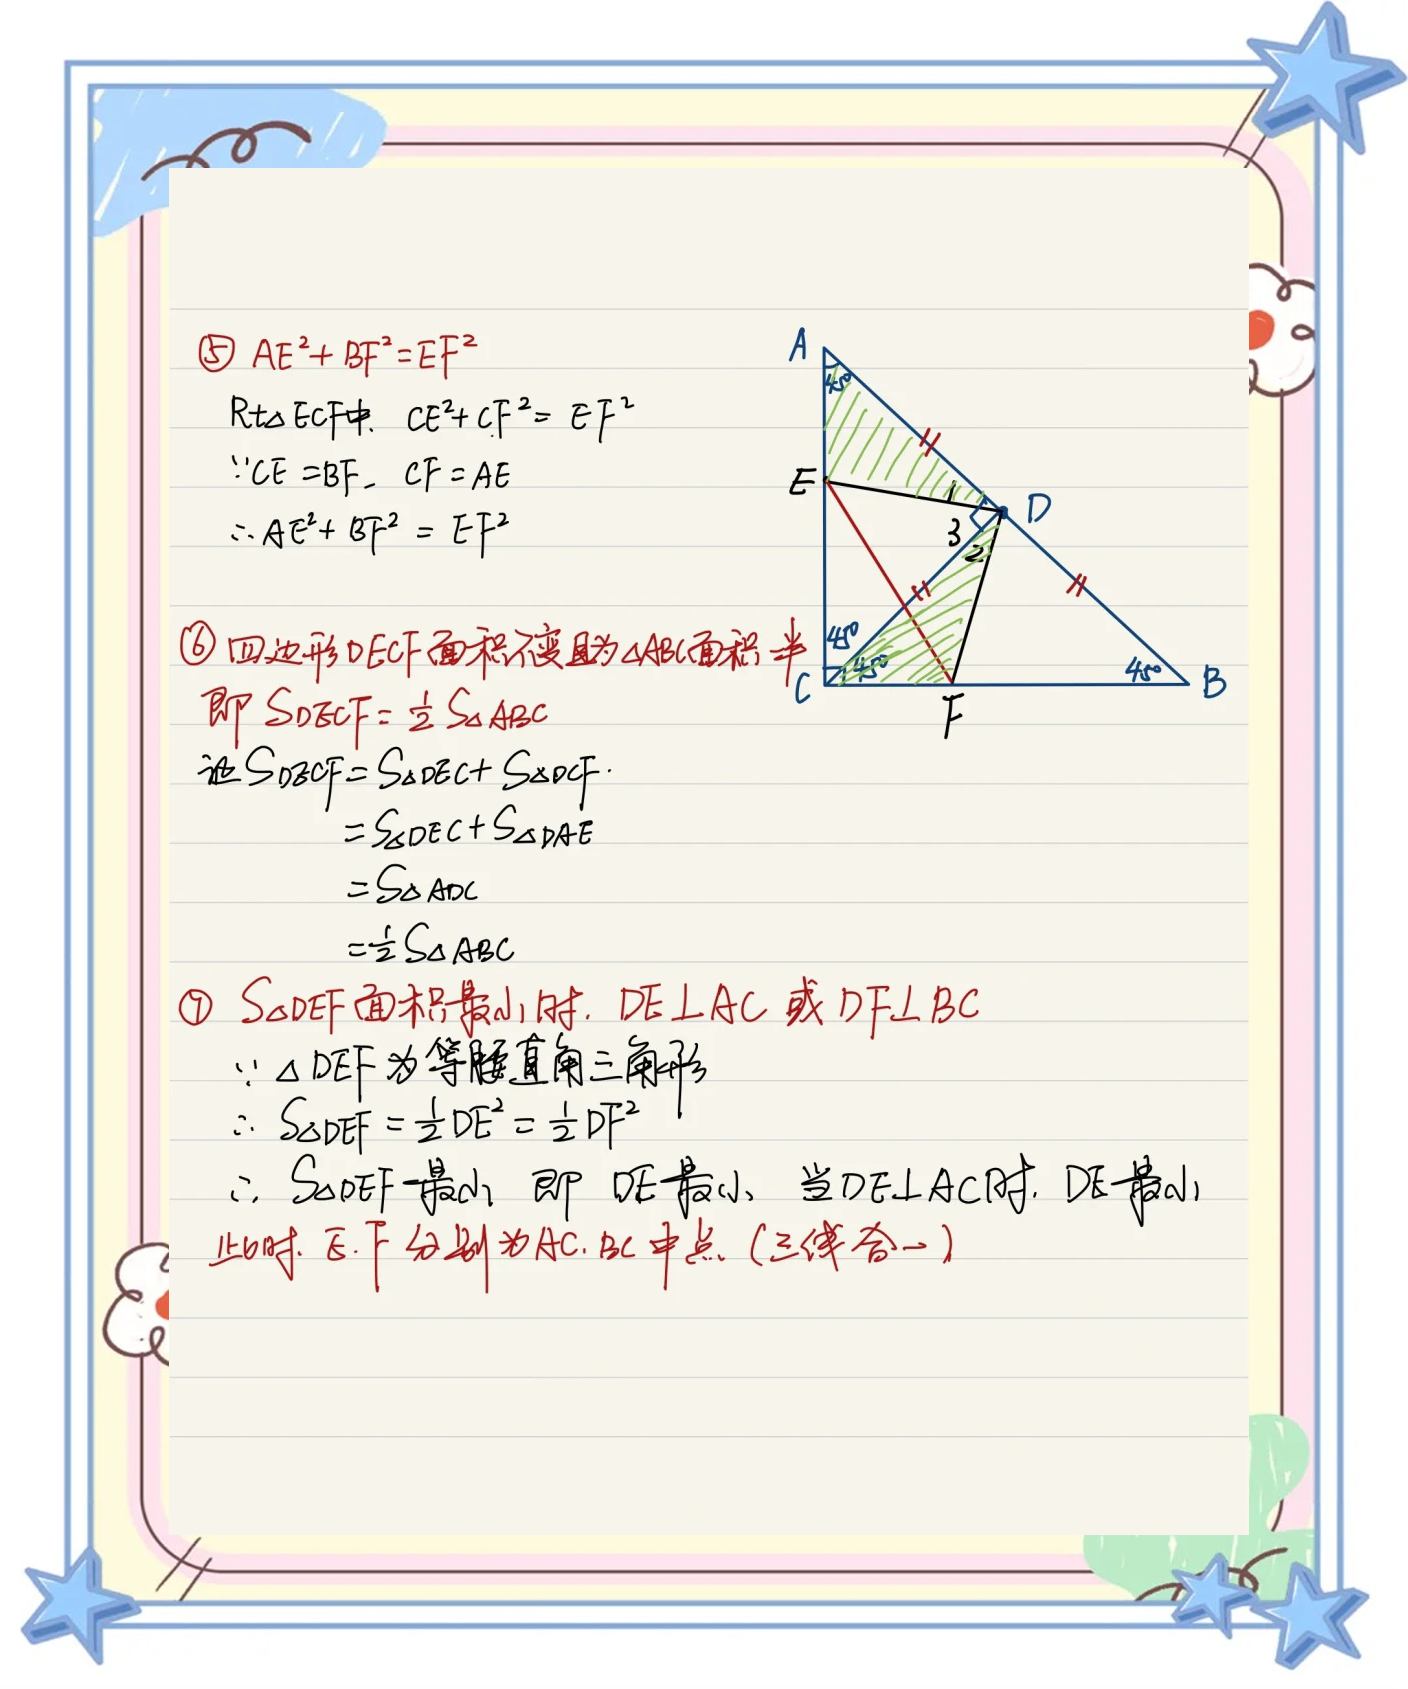 ⑤ AE²+BF²=EF²
Rt△ECF中. CE²+CF²= EF²
∵CE=BF、CF=AE
∴AE²+BF² = EF²
⑥四边形DECF面积不变且为△ABC面积一半
即 SDECF=½S△ABC
证SDECF=S△DEC+S△DCF.
=S△DEC+S△DAE
=S△ADC
=½S△ABC
⑦ S△DEF面积最小时. DE⊥AC 或 DF⊥BC
∵△DEF为等腰直角三角形
∴ S△DEF=½DE²=½DF²
∴ S△DEF最小 即 DE最小、当DE⊥AC时. DE最小
此时. E.F分别为AC.BC中点.(三线合一)
A
45°
E
1
D
3
2
45°
C
45°
F
45°
B